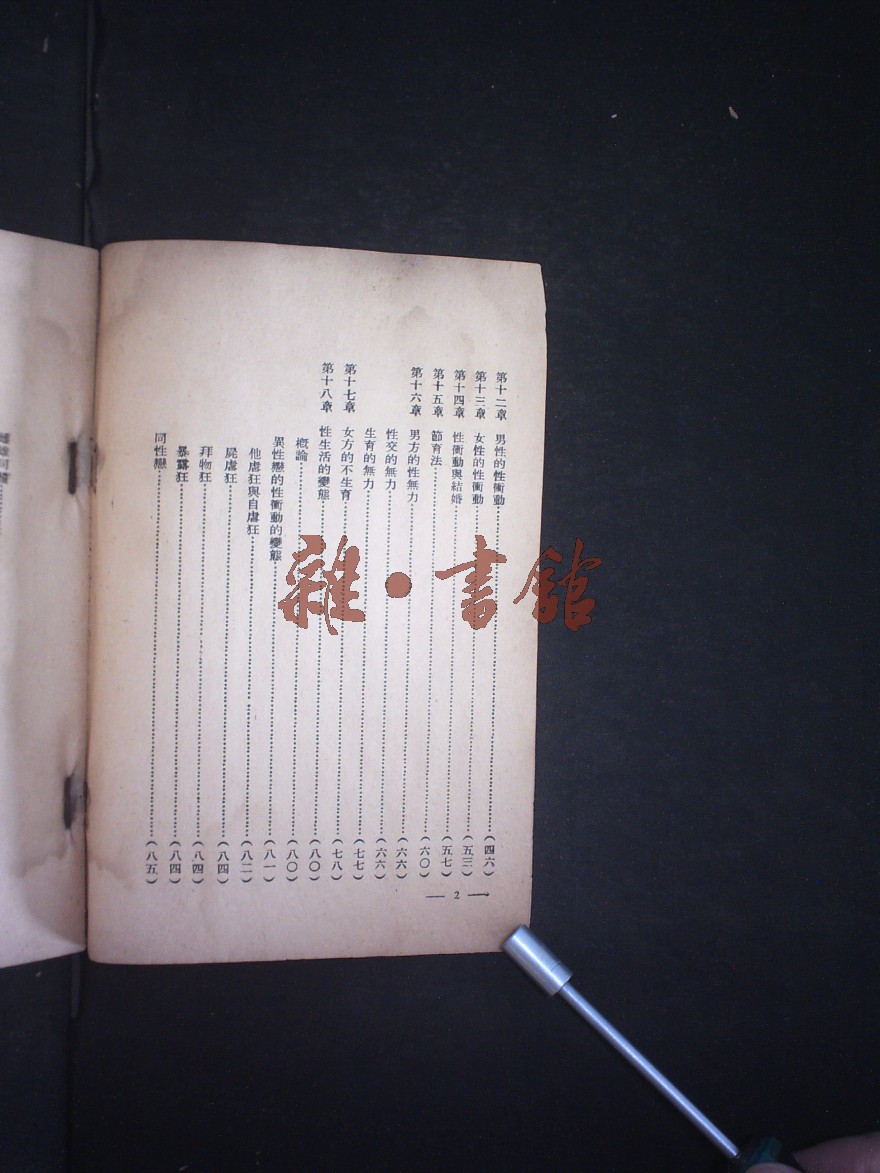 第十二章 男性的性衝動……(四六)
第十三章 女性的性衝動……(五三)
第十四章 性衝動與結婚……(五七)
第十五章 節育法……(六〇)
第十六章 男方的性無力……(六六)
性交的無力……(六六)
生育的無力……(七七)
第十七章 女方的不生育……(七八)
第十八章 性生活的變態……(八〇)
概論……(八〇)
異性戀的性衝動的變態……(八一)
他虐狂與自虐狂……(八二)
屍虐狂……(八四)
拜物狂……(八四)
暴露狂……(八四)
同性戀……(八五)
— 2 —
雜·書館